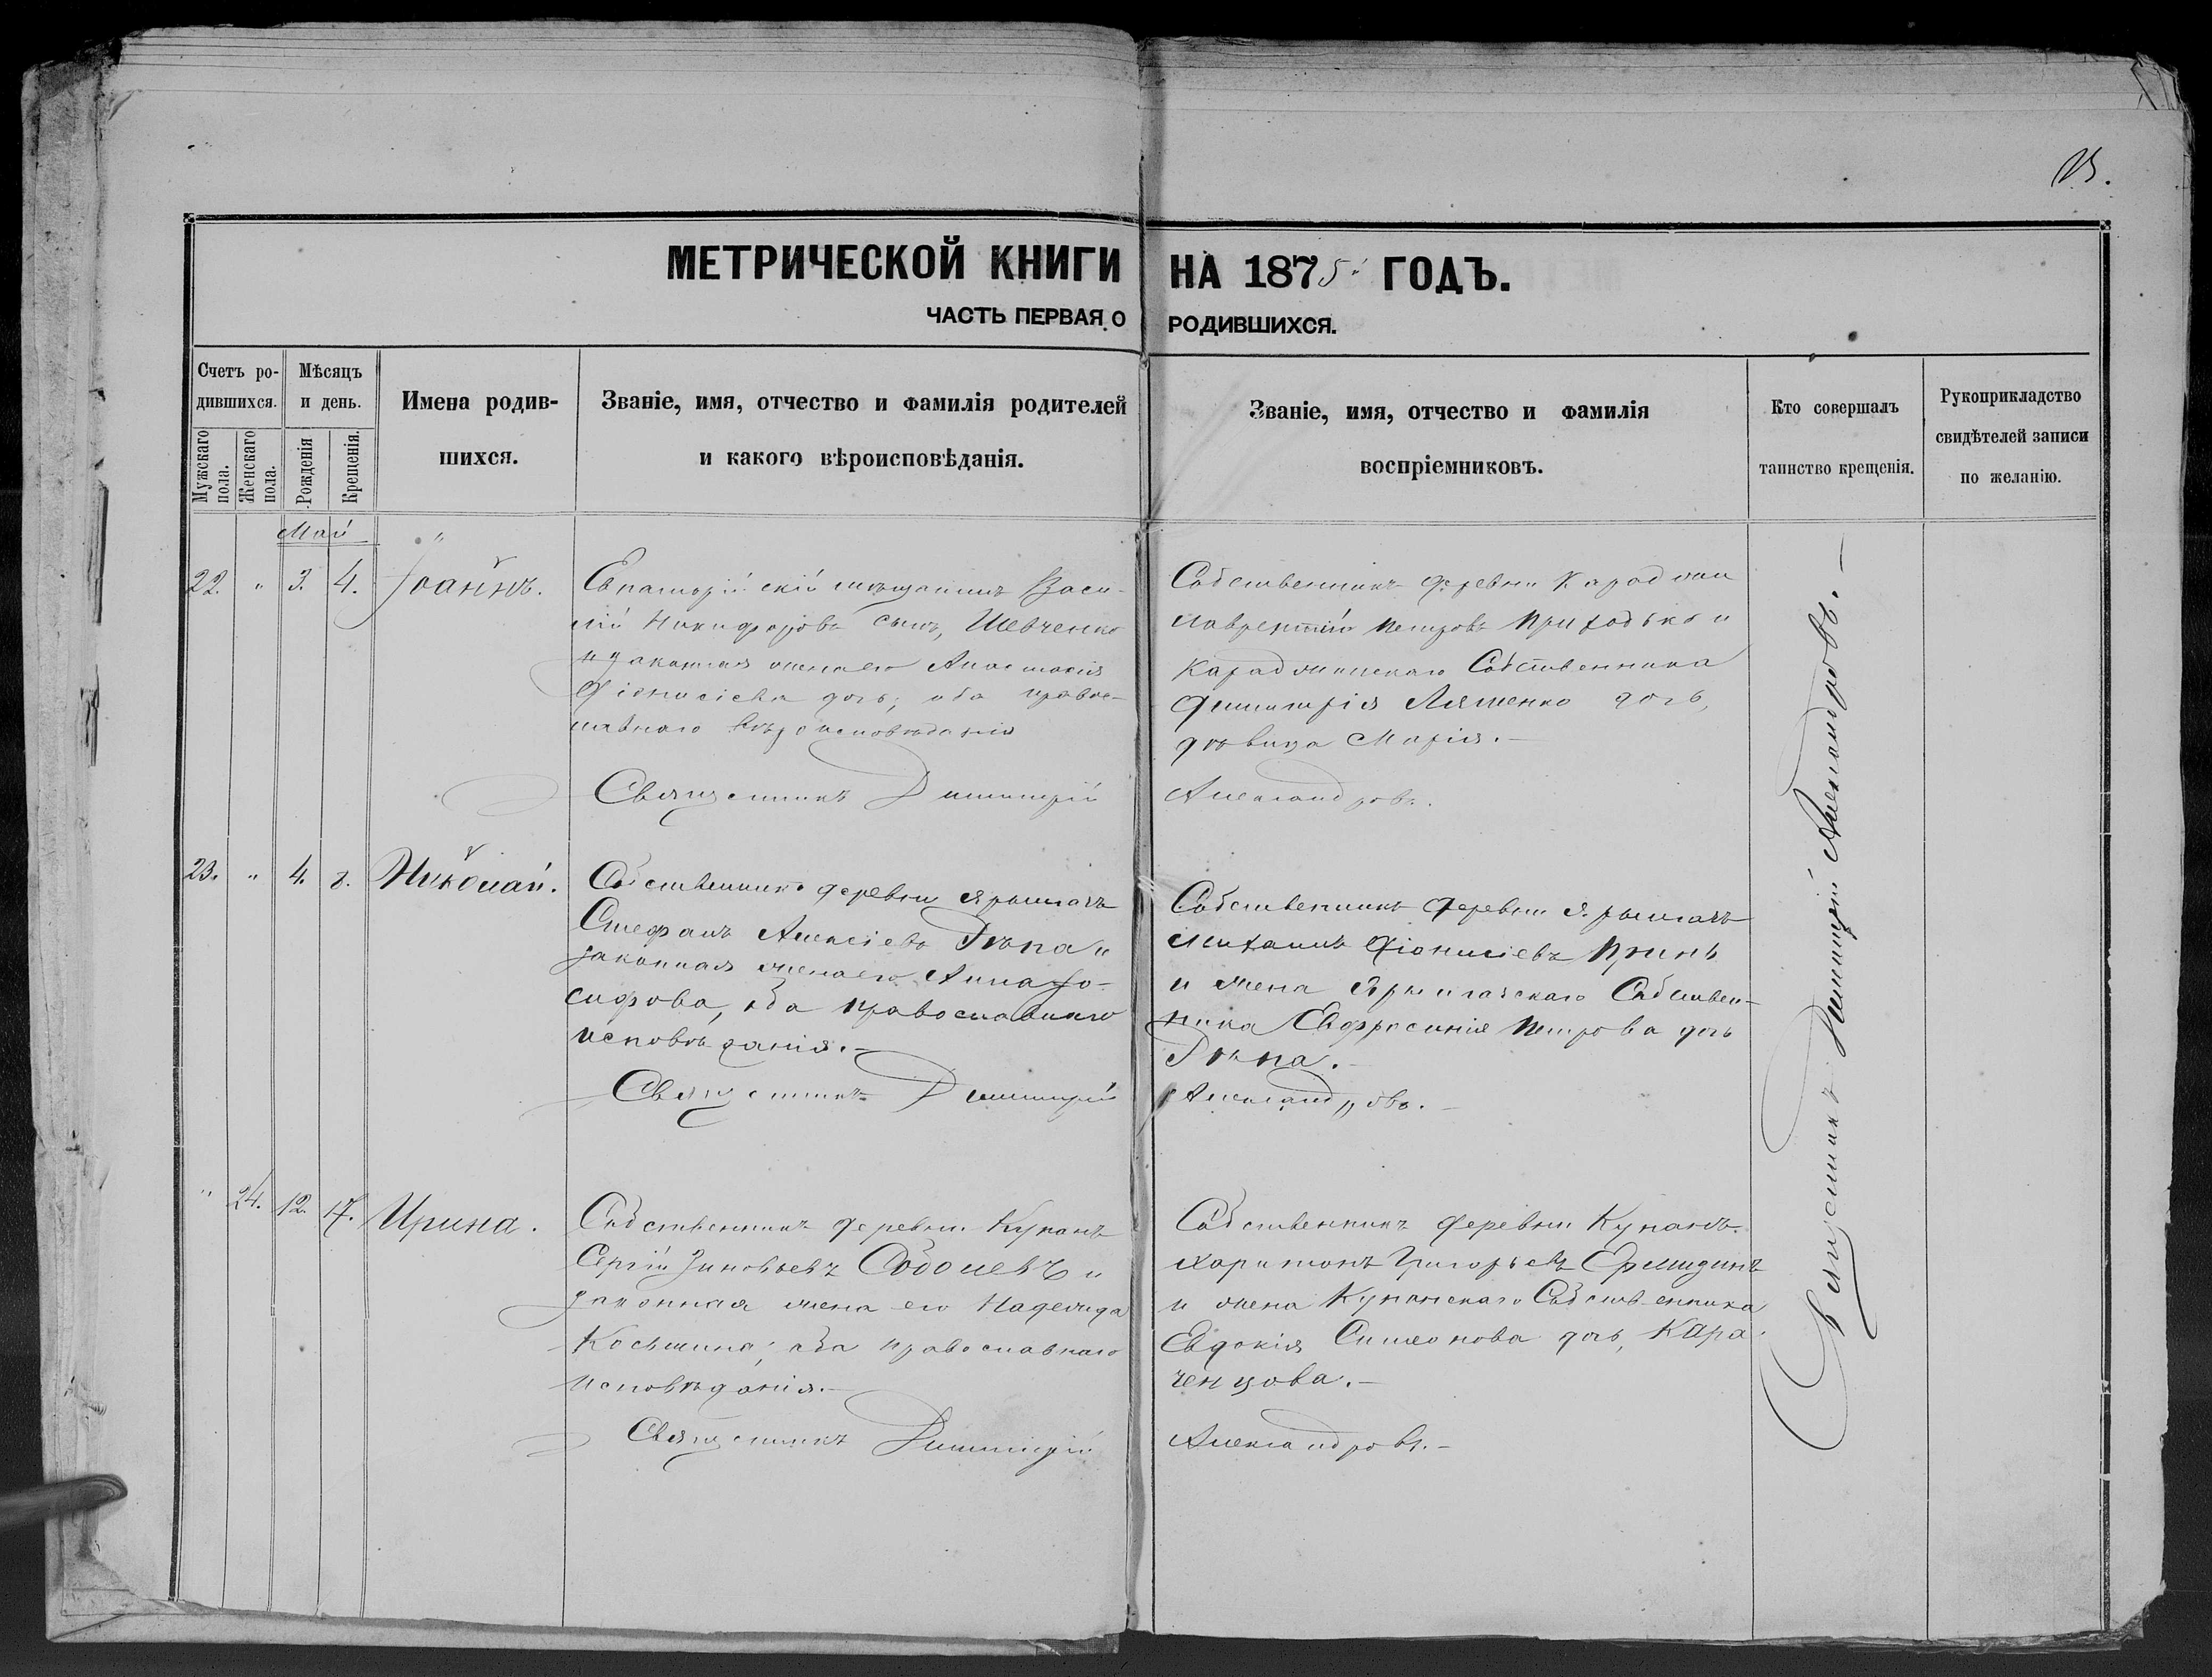 МЕТРИЧЕСКОЙ КНИГИ НА 1875 ГОДЪ.
ЧАСТЬ ПЕРВАЯ О РОДИВШИХСЯ.
Счетъ ро-
дившихся.
Мужскаго пола.
Женскаго пола.
Мѣсяцъ
и день.
Рожденія
Крещенія.
Имена родив-
шихся.
Званіе, имя, отчество и фамилія родителей
и какого вѣроисповѣданія.
Званіе, имя, отчество и фамилія
воспріемниковъ.
Кто совершалъ
таинство крещенія.
Рукоприкладство
свидѣтелей записи
по желанію.
Май
22. " 3. 4. Іоаннъ.
Евпаторійскій мѣщанинъ Васи-
лій Никифоровъ сынъ, Шевченко
и законная жена его Анастасія
Діонисіева дочь; оба право-
славнаго вѣроисповѣданія
Священникъ Димитрій
Собственникъ деревни
Лаврентій Петровъ Приходько и
Собственника
Димитрія Ляшенко дочь,
дѣвица Марія.—
Александровъ.
23. " 4. 8. Николай.
Собственникъ деревни Ярылгачъ
Стефанъ Алексіевъ Рѣпа и
законная жена его Анна Іо-
сифова, оба православнаго
исповѣданія.—
Священникъ Димитрій
Собственникъ деревни Ярылгачъ
Михаилъ Діонисіевъ
и жена Ярылгачскаго Собствен-
ника Евфросинія Петрова дочь
Рѣпа.—
Александровъ.—
" 24. 12. 17. Ирина.
Собственникъ деревни Кунанъ
Сергій Зиновьевъ Соболевъ и
законная жена его Надежда
Косьмина; оба православнаго
исповѣданія.—
Священникъ Димитрій
Собственникъ деревни Кунанъ
Харитонъ Григорьевъ
и жена Кунанскаго Собственника
Евдокія Симеонова дочь, Кара-
ченцова.—
Александровъ.—
Священникъ Димитрій Александровъ.—